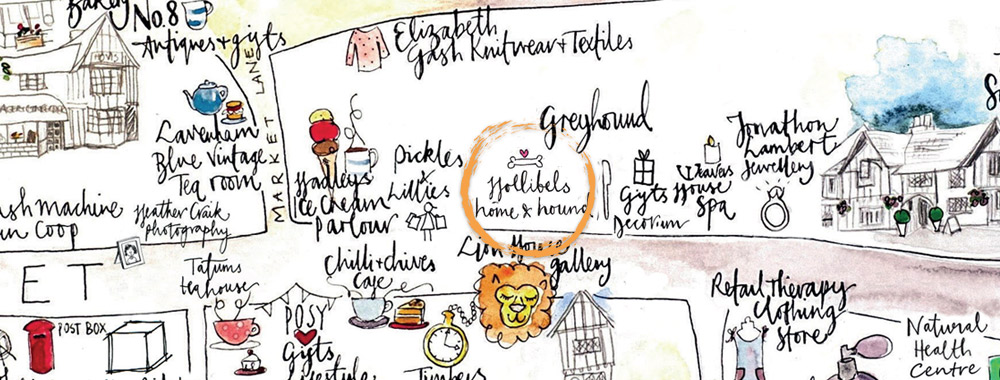 Bakery
No.8
Antiques + gifts
Elizabeth
Gash Knitwear + Textiles
MARKET LANE
Lavenham
Blue Vintage
Tea room
Heather Craik
photography
Hadleys
Ice Cream
parlour
Pickles
&
Lillies
Hollibels
home & hound
Greyhound
Gifts
Decorum
Weavers
House
Spa
Jonathon
Lambert
Jewellery
ash machine
in Coop
ET
Tatums
teahouse
Chilli + chives
Cafe
Lion House
gallery
POST BOX
POSY
Gifts
Lifestyle
Timbers
Retail Therapy
Clothing
Store
Natural
Health
Centre